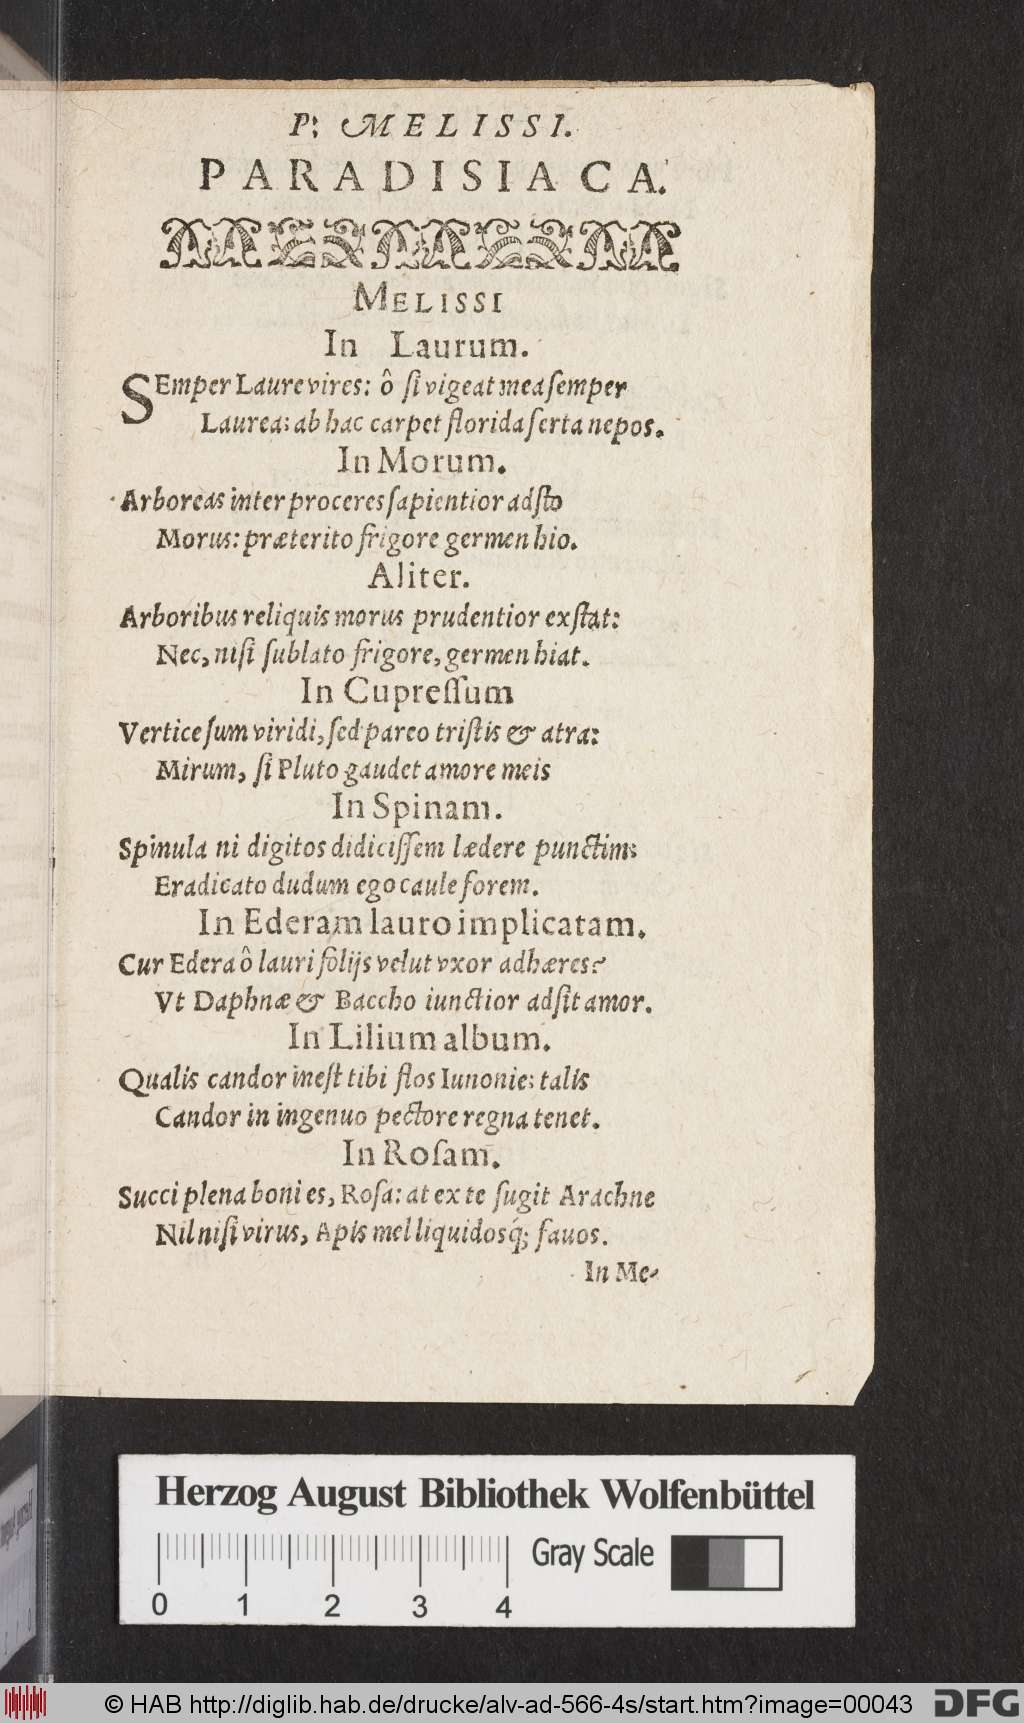 P: MELISSI.
PARADISIACA.
MELISSI
In Laurum.
SEmper Laure vires: ô ſi vigeat mea ſemper
Laurea: ab hac carpet florida ſerta nepos.
In Morum.
Arboreas inter proceres ſapientior adſto
Morus: præterito frigore germen hio.
Aliter.
Arboribus reliquis morus prudentior exſtat:
Nec, niſi ſublato frigore, germen hiat.
In Cupreſſum
Vertice ſum viridi, ſed pareo triſtis & atra:
Mirum, ſi Pluto gaudet amore meis
In Spinam.
Spinula ni digitos didiciſſem lædere punctim:
Eradicato dudum ego caule forem.
In Ederam lauro implicatam.
Cur Edera ô lauri folijs velut vxor adhæres?
Vt Daphnæ & Baccho iunctior adſit amor.
In Lilium album.
Qualis candor ineſt tibi flos Iunonie: talis
Candor in ingenuo pectore regna tenet.
In Roſam.
Succi plena boni es, Roſa: at ex te ſugit Arachne
Nil niſi virus, Apis mel liquidosq́; fauos.
In Me-
Herzog August Bibliothek Wolfenbüttel
Gray Scale
0 1 2 3 4
© HAB http://diglib.hab.de/drucke/alv-ad-566-4s/start.htm?image=00043
DFG